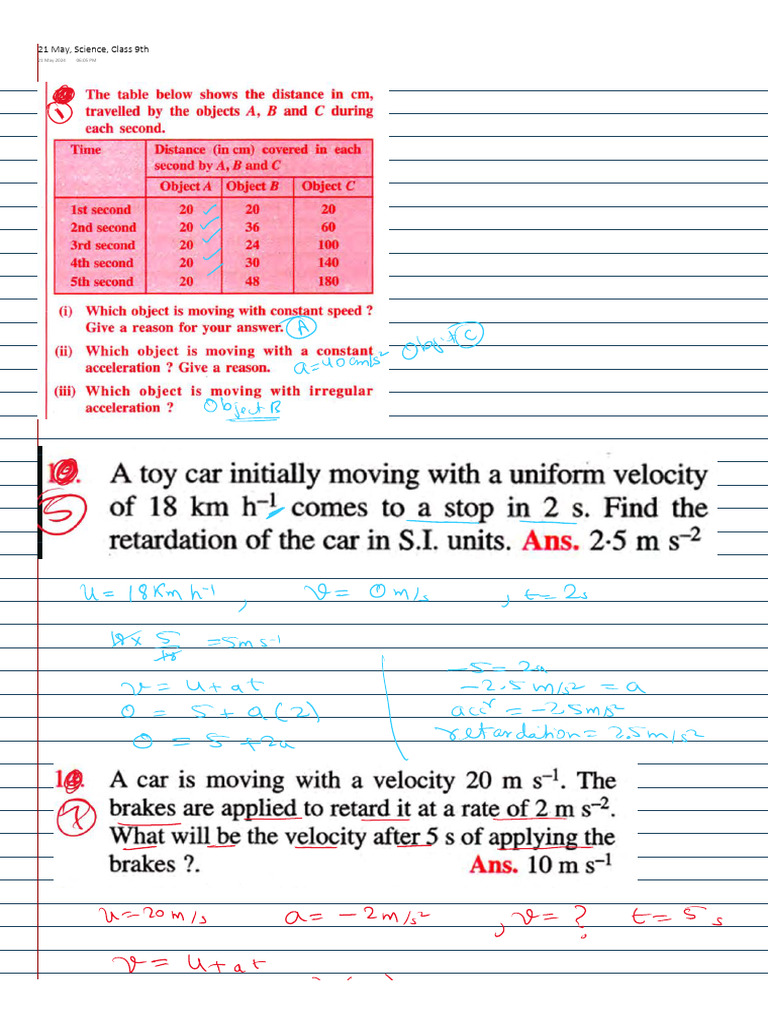 21 May, Science, Class 9th
21 May 2023 06:05 PM
The table below shows the distance in cm,
1 travelled by the objects A, B and C during
each second.
Time Distance (in cm) covered in each
second by A, B and C
Object A Object B Object C
1st second 20 ✓ 20 20
2nd second 20 ✓ 36 60
3rd second 20 ✓ 24 100
4th second 20 ✓ 30 140
5th second 20 48 180
(i) Which object is moving with constant speed ?
Give a reason for your answer. A
(ii) Which object is moving with a constant
acceleration ? Give a reason. a=40cm/s² Object C
(iii) Which object is moving with irregular
acceleration ? Object B
A toy car initially moving with a uniform velocity
5 of 18 km h⁻¹ comes to a stop in 2 s. Find the
retardation of the car in S.I. units. Ans. 2·5 m s⁻²
u = 18 Km h⁻¹, v = 0 m/s, t = 2s
18 × 5/18 = 5 m s⁻¹
v = u + at
0 = 5 + a(2)
0 = 5 + 2a
-5 = 2a
-2.5 m/s² = a
accⁿ = -2.5 m/s²
retardation = 2.5 m/s²
A car is moving with a velocity 20 m s⁻¹. The
7 brakes are applied to retard it at a rate of 2 m s⁻².
What will be the velocity after 5 s of applying the
brakes ?. Ans. 10 m s⁻¹
u = 20 m/s a = -2 m/s², v = ? t = 5 s
v = u + at